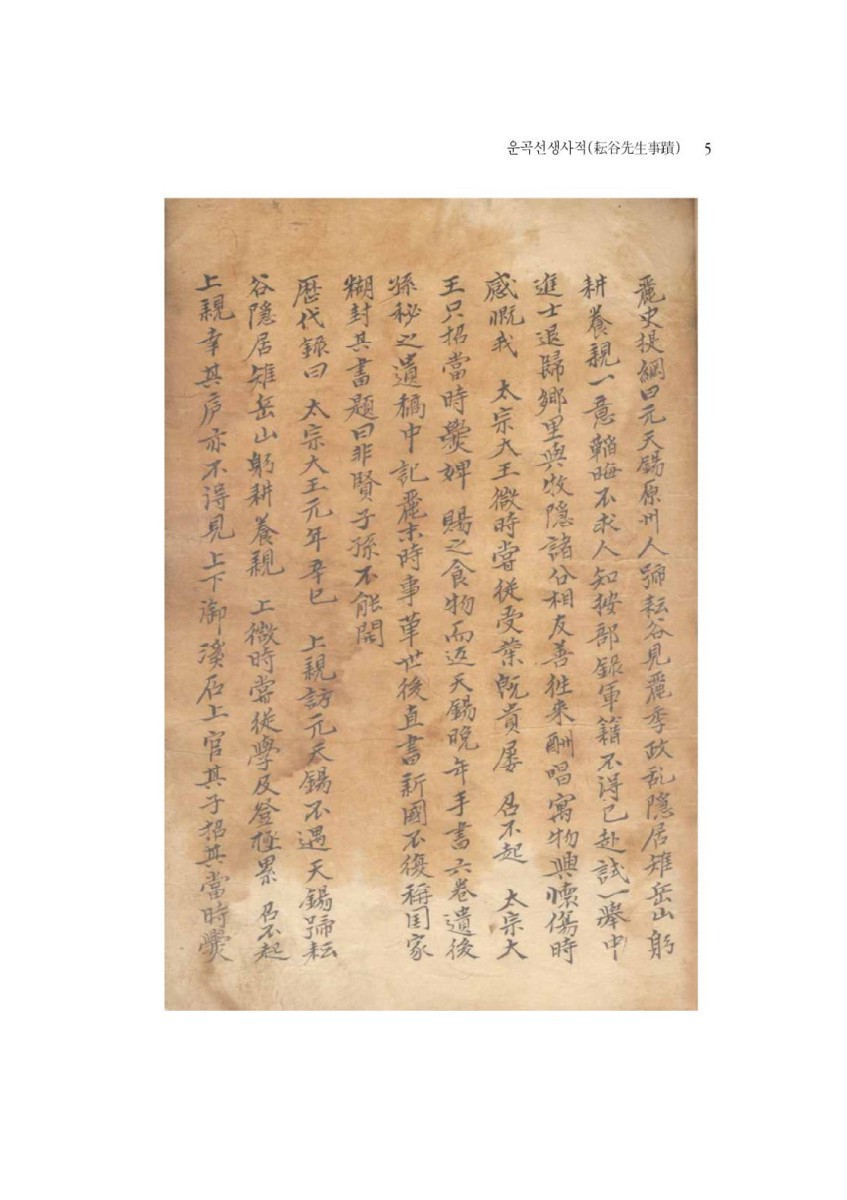 운곡선생사적(耘谷先生事蹟) 5
麗史提綱曰元天錫原州人号耘谷見麗季政乱隠居雉岳山躬
耕養親一意韜晦不求人知按部録軍籍不得已赴試一擧中
進士退歸鄉里與牧隠諸公相友善徃来酬唱寓物興懐傷時
感慨我 太宗大王微時嘗従受業旣貴屡 召不起 太宗大
王只招當時爨婢 賜之食物而返天錫晩年手書六卷遺後
孫秘之遺稿中記麗末時事革世後直書新國不復稱国家
糊封其書題曰非賢子孫不能開
歴代録曰 太宗大王元年辛巳 上親訪元天錫不遇天錫号耘
谷隠居雉岳山躬耕養親 上微時嘗従學及登極累 召不起
上親幸其庐亦不得見上下御溪石上官其子招其當時爨